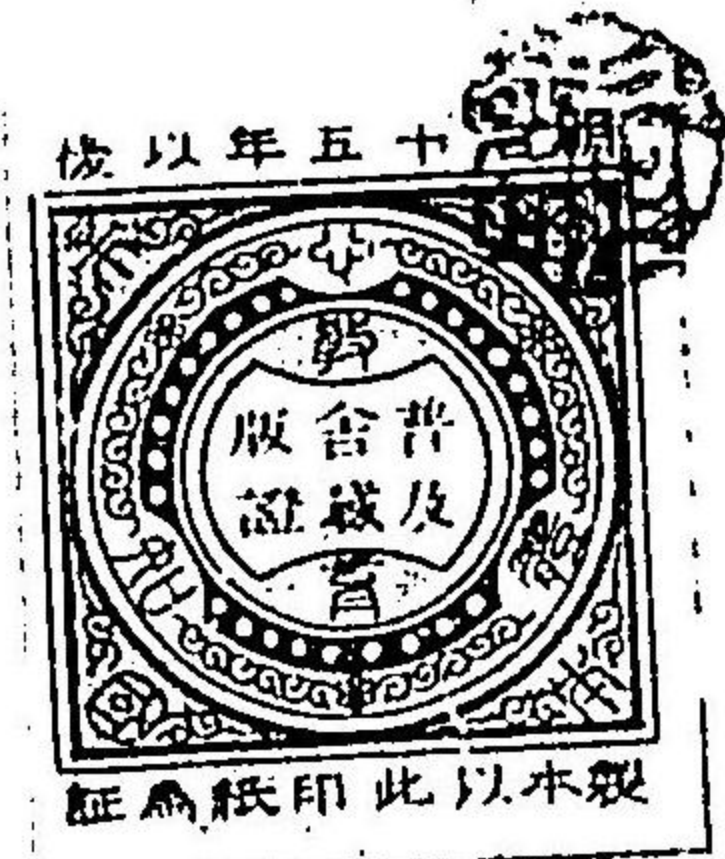 明十五年以後
普及
舎蔵
版證
製本以此印紙為証